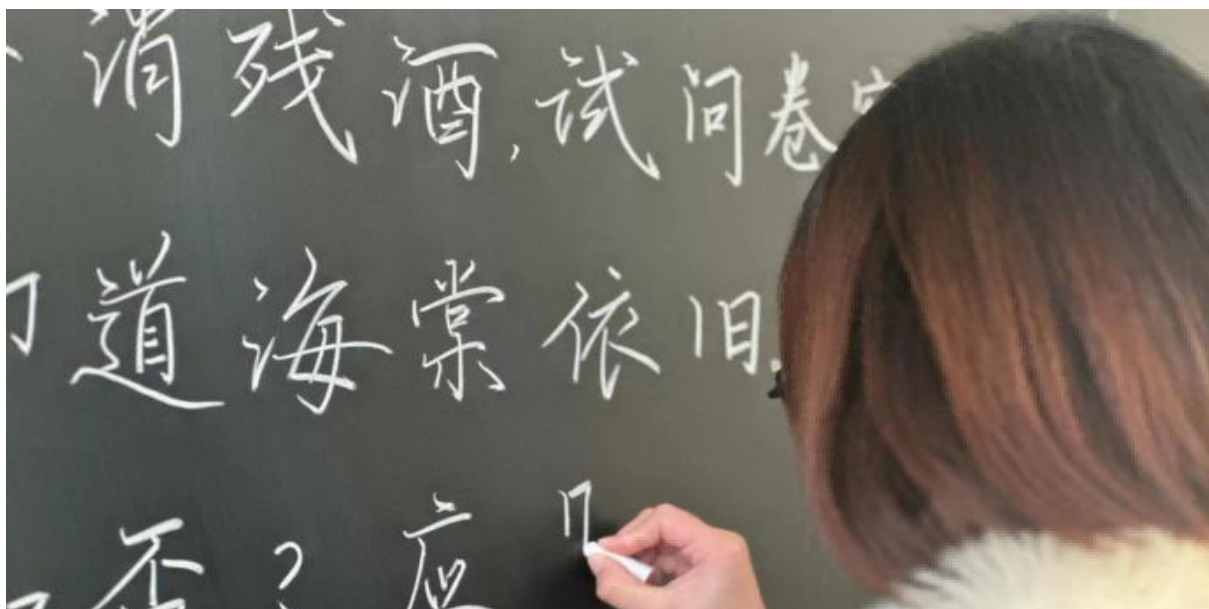 消残酒,试问卷
道海棠依旧.
否?应